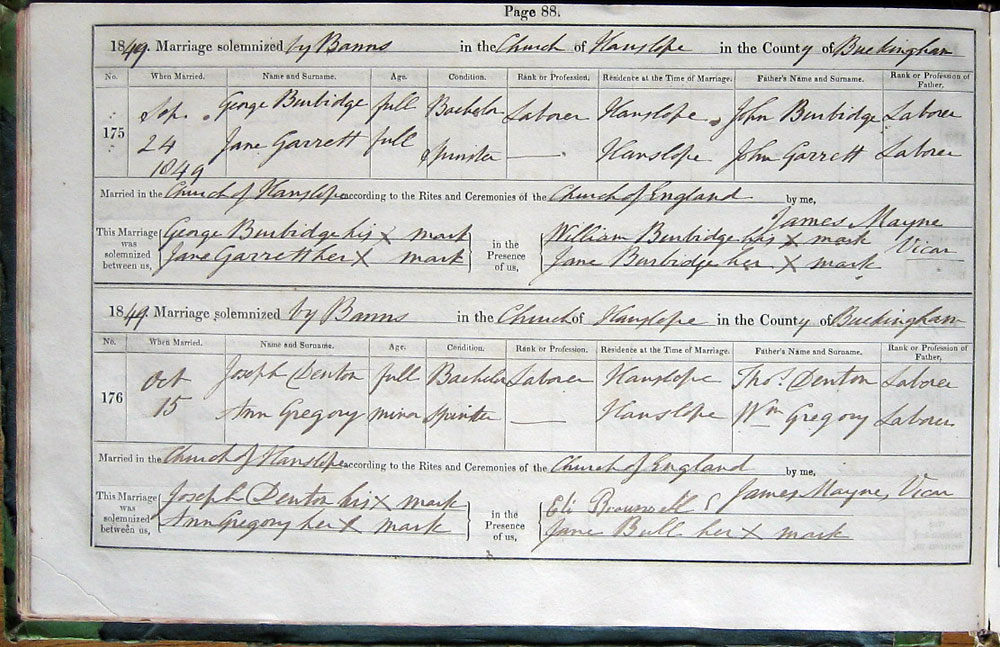 Page 88.
1849. Marriage solemnized by Banns in the Church of Hanslope in the County of Buckingham
No. When Married. Name and Surname. Age. Condition. Rank or Profession. Residence at the Time of Marriage. Father's Name and Surname. Rank or Profession of Father.
175 Sep. George Burbidge full Bachelor Laborer Hanslope John Burbidge Laborer
24 Jane Garrett full Spinster — Hanslope John Garrett Laborer
1849
Married in the Church of Hanslope according to the Rites and Ceremonies of the Church of England by me,
James Mayne
Vicar
This Marriage was solemnized between us, George Burbidge his X mark in the Presence of us, William Burbidge his X mark
Jane Garrett her X mark Jane Burbidge her X mark
1849. Marriage solemnized by Banns in the Church of Hanslope in the County of Buckingham
No. When Married. Name and Surname. Age. Condition. Rank or Profession. Residence at the Time of Marriage. Father's Name and Surname. Rank or Profession of Father.
176 Oct Joseph Denton full Bachelor Laborer Hanslope Thos. Denton Laborer
15 Ann Gregory minor Spinster — Hanslope Wm Gregory Laborer
Married in the Church of Hanslope according to the Rites and Ceremonies of the Church of England by me,
James Mayne, Vicar
This Marriage was solemnized between us, Joseph Denton his X mark in the Presence of us, Eli
Ann Gregory her X mark Jane Bull her X mark